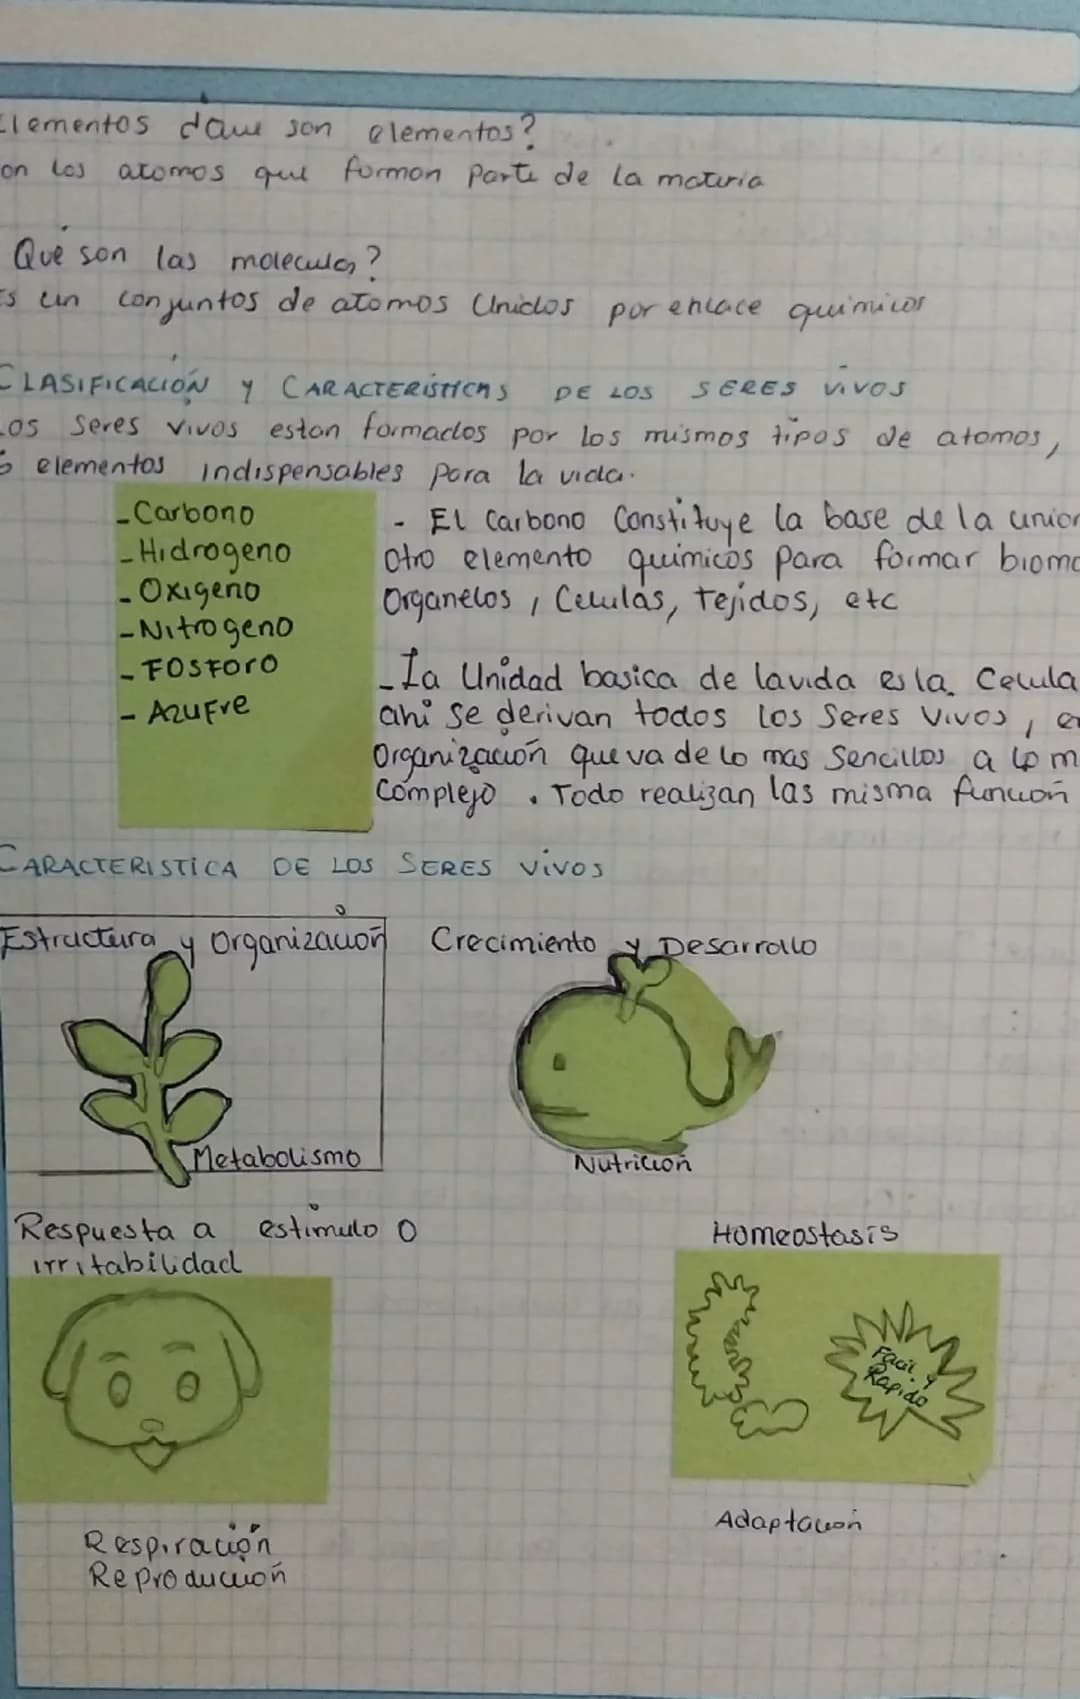 Elementos ¿que son elementos?
on los atomos que forman parte de la materia
Qué son las moleculas?
Es un conjuntos de atomos Unidos por enlace quimicos
CLASIFICACIÓN y CARACTERÍSTICAS DE LOS SERES VIVOS
Los Seres vivos estan formados por los mismos tipos de atomos,
6 elementos indispensables para la vida.
-Carbono
-Hidrogeno
-Oxigeno
-Nitrogeno
-FOSFORO
- AzuFre
- El Carbono Constituye la base de la union
Otro elemento químicos para formar biomo
Organelos, Celulas, Tejidos, etc
-La Unidad basica de la vida es la Celula
ahi se derivan todos los Seres Vivos, en
Organización que va de lo mas Sencillos a lo m
Complejo. Todo realizan las misma función
CARACTERISTICA DE LOS SERES VIVOS
Estructura y Organización
Crecimiento y Desarrollo
Metabolismo
Nutrición
Respuesta a estímulo o
irritabilidad
Homeostasis
Facil y
Rapido
Adaptación
Respiración
Reproducción